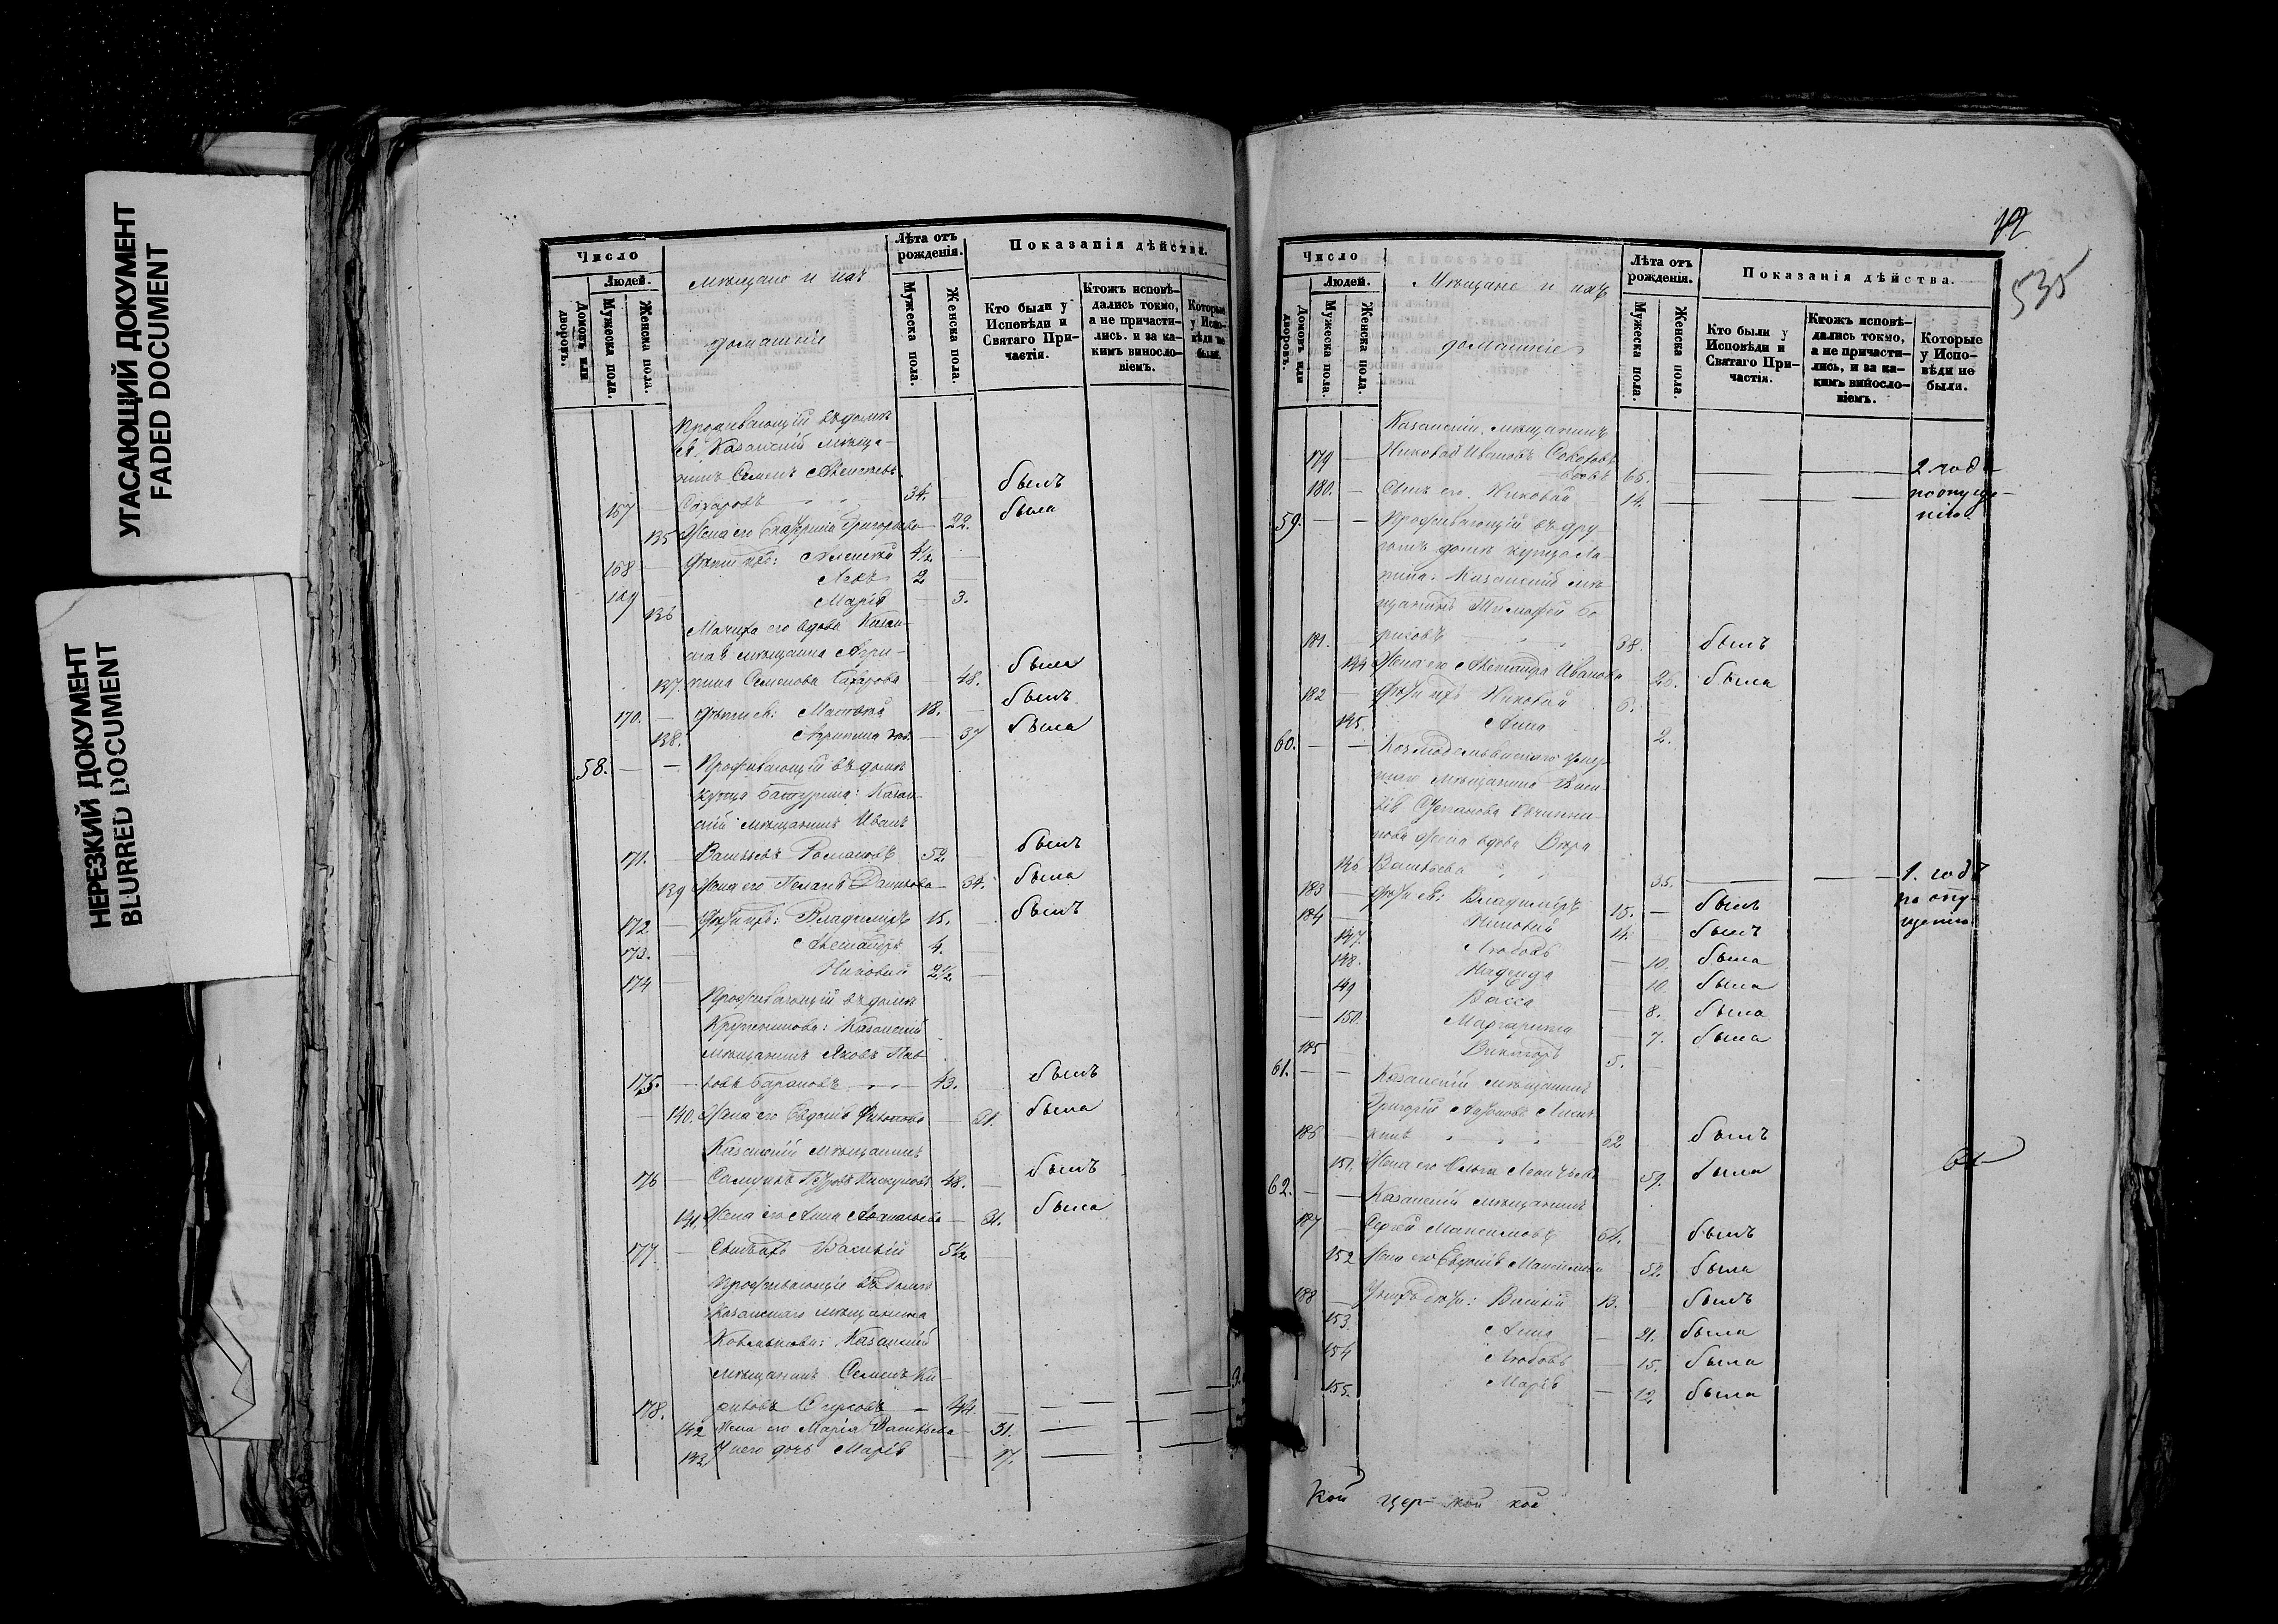 УГАСАЮЩИЙ ДОКУМЕНТ
FADED DOCUMENT
НЕРЕЗКИЙ ДОКУМЕНТ
BLURRED DOCUMENT
Число
Людей.
Домовъ или дворовъ.
Мужеска пола.
Женска пола.
мѣщане и ихъ
домашніе
Лѣта отъ рожденія.
Мужеска пола.
Женска пола.
Показанія дѣйства.
Кто были у Исповѣди и Святаго Причастія.
Ктожъ исповѣдались токмо, а не причастились, и за какимъ винословіемъ.
Которые у Исповѣди не были.
Проживающій въ домѣ
Казанскій мѣща-
нинъ Семенъ Алексѣевъ
167 — Сахаровъ 34. — былъ
135 Жена его Екатерина Григорьева — 22. была
168 — Дѣти ихъ: Алексѣй 4½ —
169 — 2 —
136 Марія — 3.
Мачиха его вдова Казан-
ская мѣщанка Агри-
137. пина Семенова Сахарова — 48. была
170. — Дѣти ея: Матвѣй 18. — былъ
138. Агрипина — 37 была
58. — — Проживающій въ домѣ
купца Батурина: Казан-
скій мѣщанинъ Иванъ
171. — Васильевъ Романовъ 52 — былъ
139 Жена его Пелагія Данилова — 34. была
172 — Дѣти ихъ: Владиміръ 15. — былъ
173. — Александръ 4. —
174 — Николай 2½ —
Проживающій въ домѣ
Крупеникова: Казанскій
мѣщанинъ Яковъ Пав-
175. — ловъ Барановъ 43. былъ
— 140. Жена его Евдокія — 21. была
Казанскій мѣщанинъ
176 — Петровъ 48. — былъ
141 Жена его Анна — 31. была
177 — Сынъ ихъ Василій 5½
Проживающій въ домѣ
Казанскаго мѣщанина
Казанскій
мѣщанинъ Семенъ Ни-
178. китовъ 44. —
142 Жена его Марія Васильева — 31. —
143 У него дочь Марія — 17. —
12
535
Число
Людей.
Домовъ или дворовъ.
Мужеска пола.
Женска пола.
Мѣщане и ихъ
домашніе
Лѣта отъ рожденія.
Мужеска пола.
Женска пола.
Показанія дѣйства.
Кто были у Исповѣди и Святаго Причастія.
Ктожъ исповѣдались токмо, а не причастились, и за какимъ винословіемъ.
Которые у Исповѣди не были.
Казанскій мѣщанинъ
179 — Николай Ивановъ 65. — — 2 года
180. — Сынъ его Николай 14. — — по опуще-
нію
59. — — Проживающій въ дру-
гомъ домѣ купца Ла-
пина: Казанскій мѣ-
щанинъ Тимофей Бо-
181. — рисовъ 38. былъ
144 Жена его Александра Иванова 26. была
182 — Дѣти ихъ Николай 6.
145. Анна 2.
60. — — Козмодемьянскаго умер-
шаго мѣщанина Васи-
лія Степанова Овчинни-
кова жена вдова Вѣра
146 Васильева 35. — — 1. годъ
183 — Дѣти ея: Владиміръ 15. — былъ по опу-
184 — Николай 14. былъ щенію
147. Любовь — 10. была
148. Надежда 10. была
149 Васса — 8. была
— 150. Маргарита — 7. была
185 Викторъ 5. —
61. — — Казанскій мѣщанинъ
Григорій
186 — 62 былъ
151. Жена его Ольга 59. была
62. — — Казанскій мѣщанинъ
187 — Сергѣй Максимовъ 64. былъ
152 Жена его Евдокія Максимова 52. была
188 — У нихъ дѣти: Василій 13. былъ
153 Анна — 21. была
154 Любовь — 15. была
155. Марія — 12. была
кой цер- кой кой